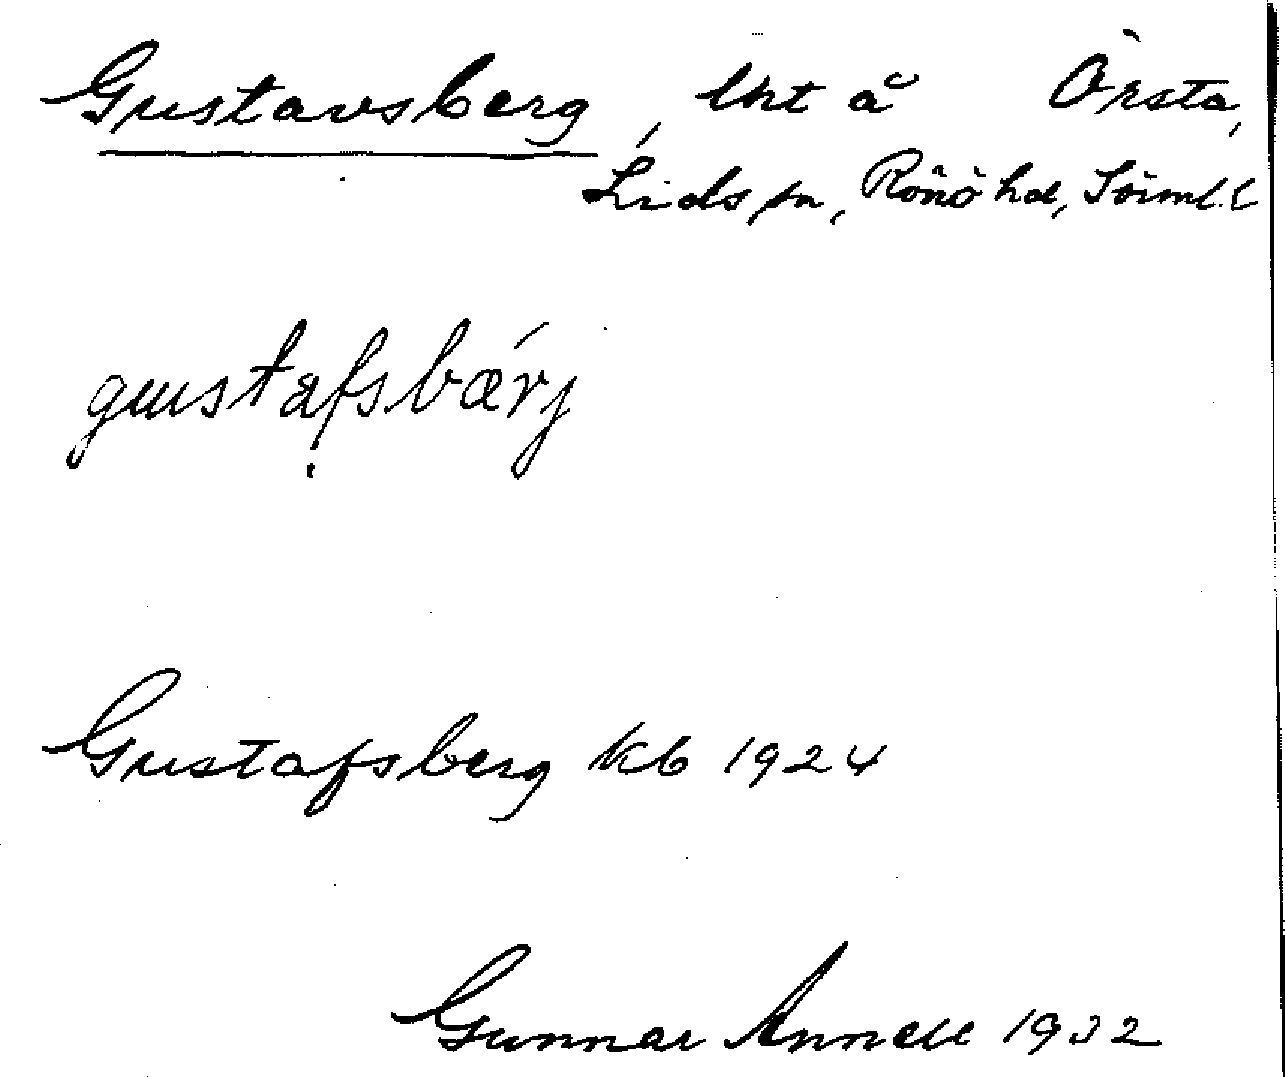 Gustavsberg, lht å Örsta,
Lids sn, Rönö hd, Sörml. l
gustafsbærj
Gustafsberg kb 1924
Gunnar Annell 1932